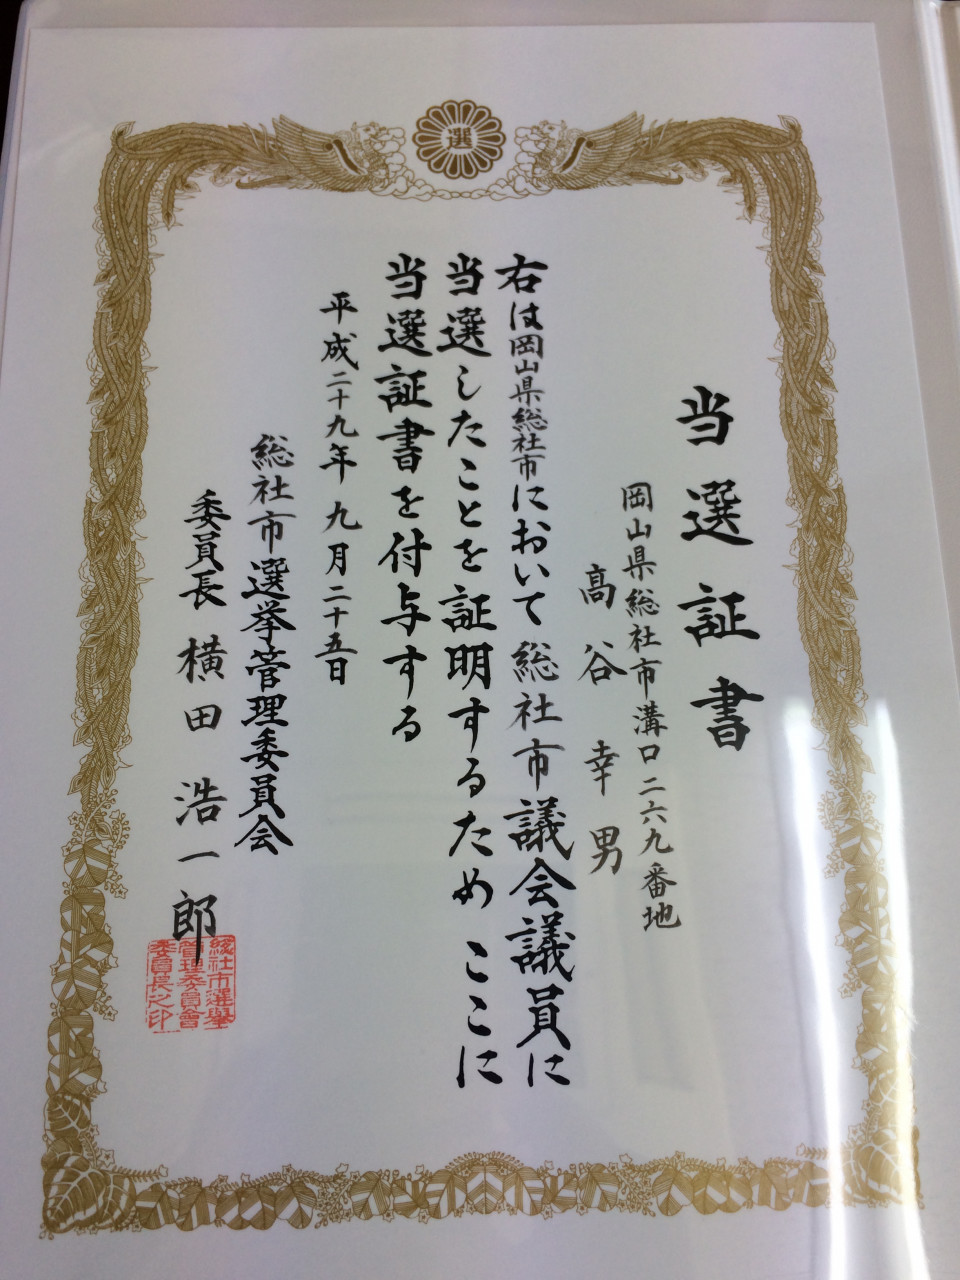 選
当選証書
岡山県総社市溝口二六九番地
髙谷幸男
右は岡山県総社市において総社市議会議員に
当選したことを証明するため ここに
当選証書を付与する
平成二十九年九月二十五日
総社市選挙管理委員会
委員長 横田浩一郎
総社市選擧
管理委員會
委員長之印